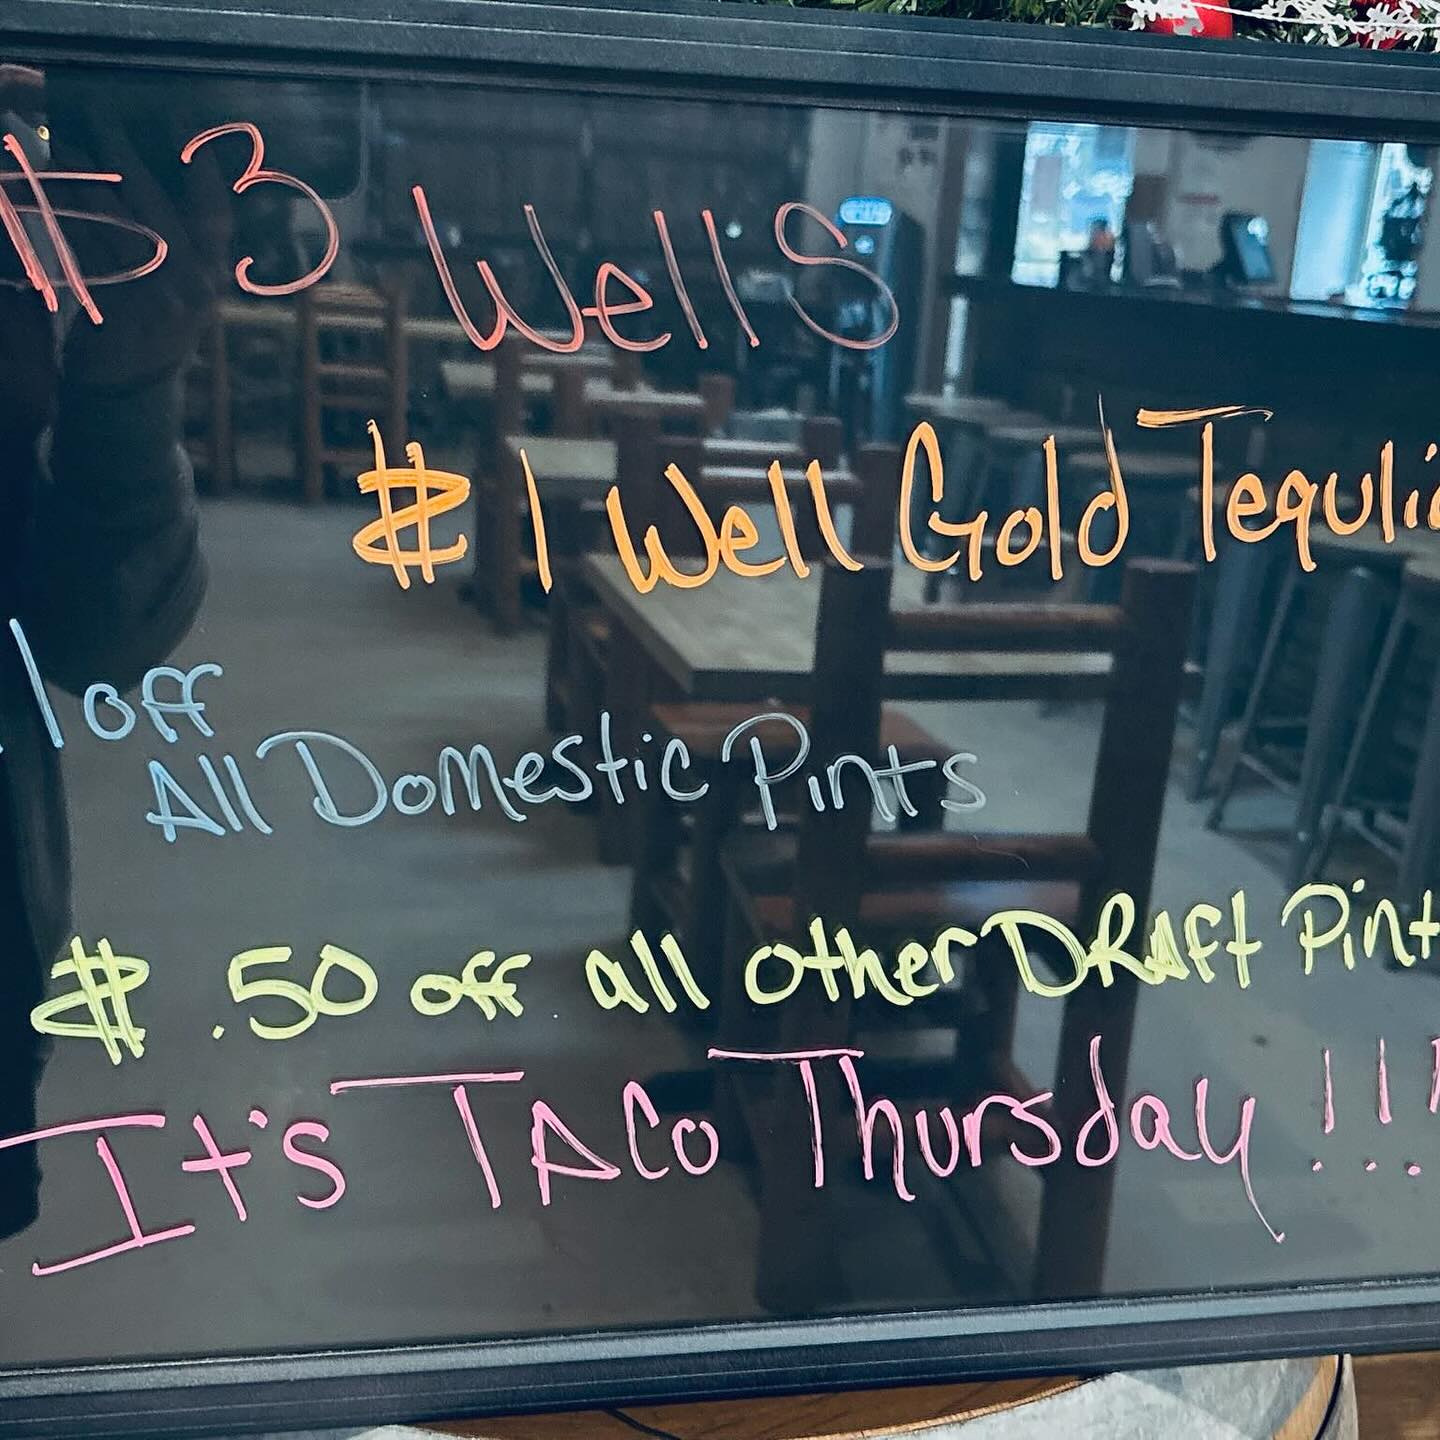 $3 Wells
$1 Well Gold Tequli
1 off
All Domestic Pints
$.50 off all other DRAft Pint
It's TACo Thursday!!!